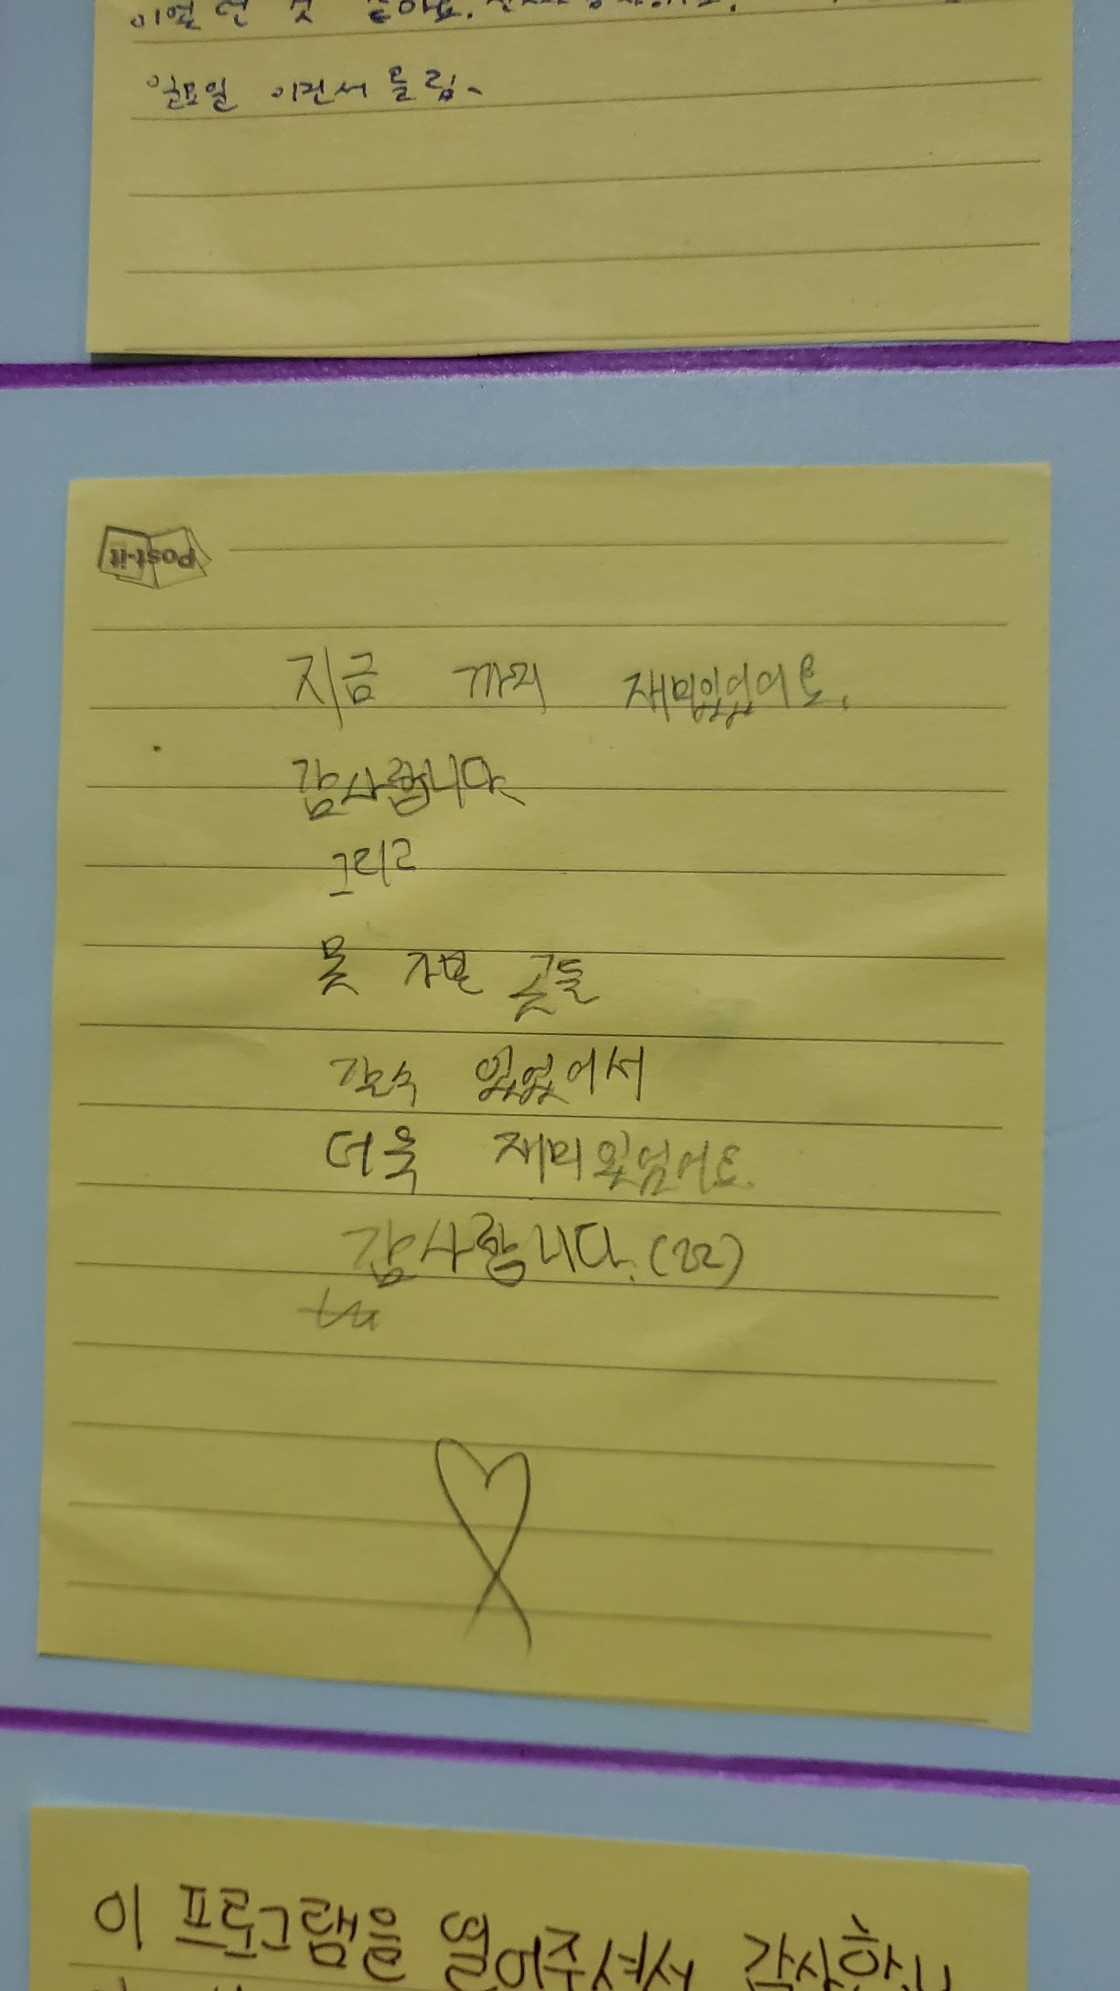 일요일 이진서 올림
Post-it
지금 까지 재미있었어요.
감사합니다
그리고
못 가본 곳들
갈수 있었어서
더욱 재미있었어요.
감사합니다.
이 프로그램을 열어주셔서 감사합니